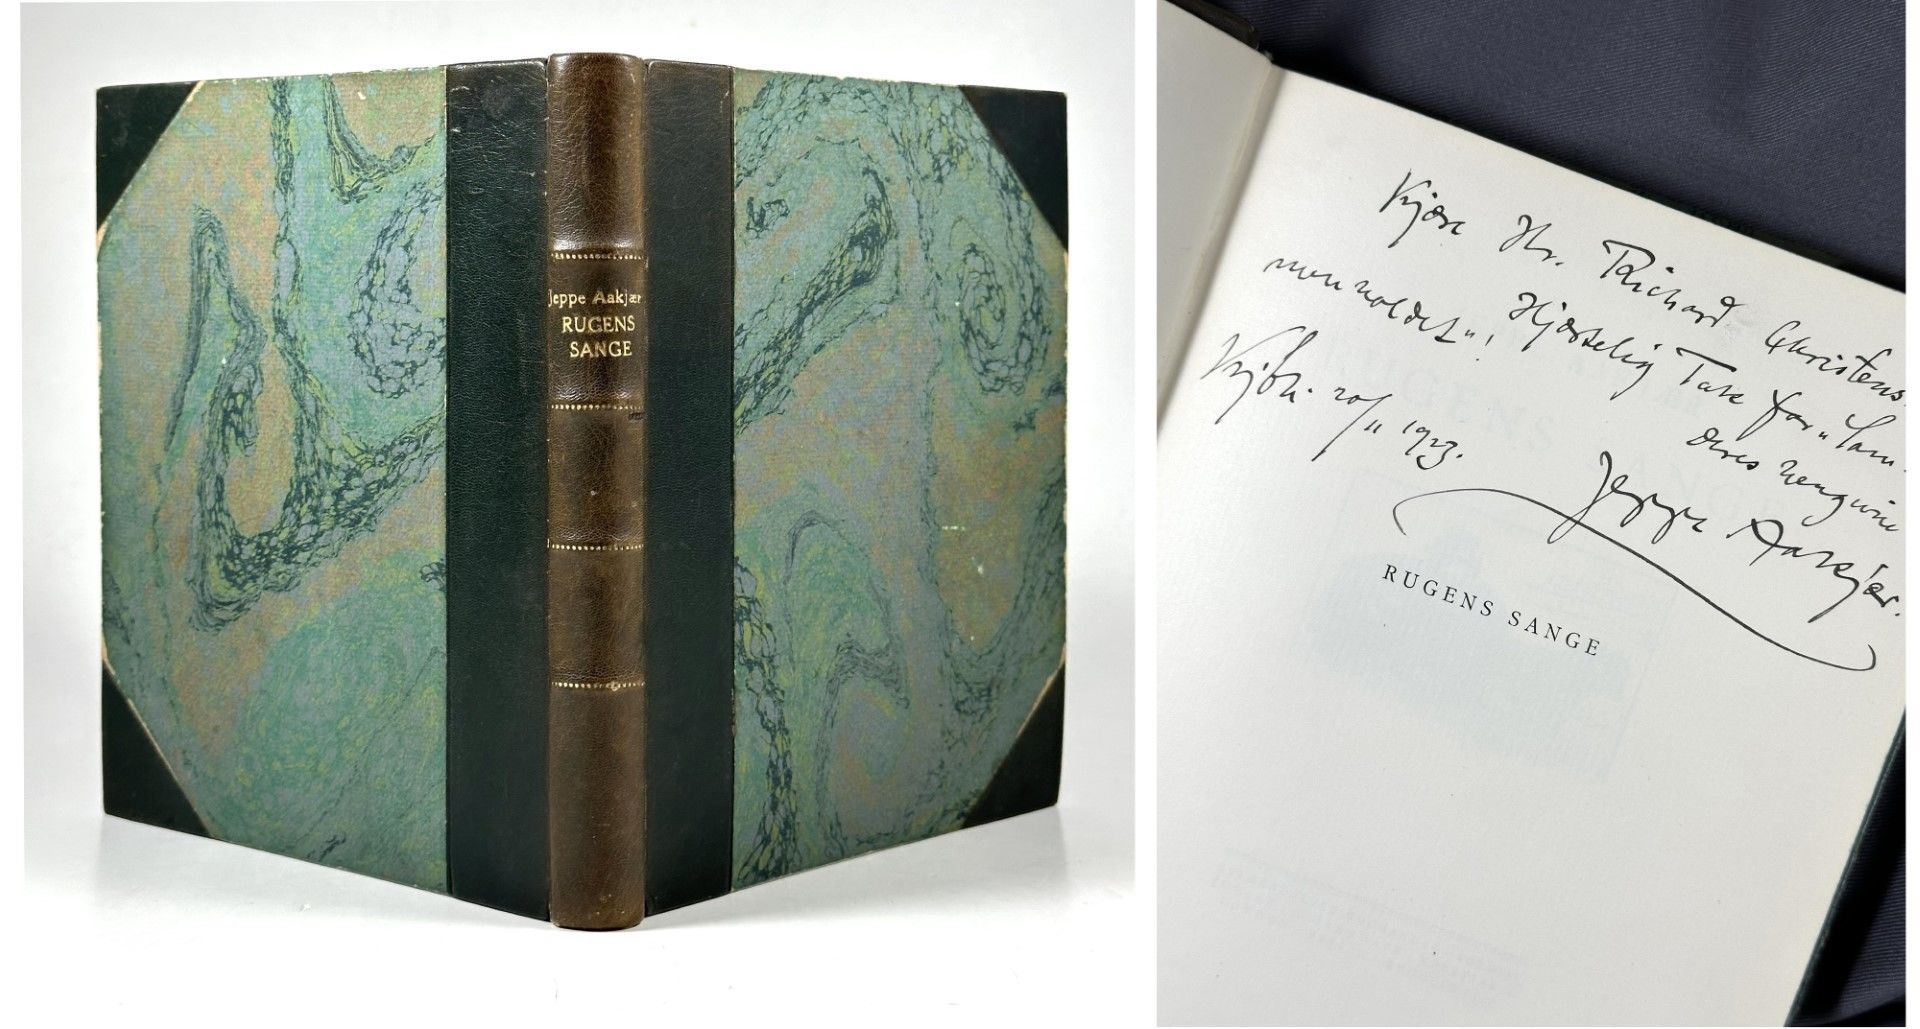 Jeppe Aakjær
RUGENS
SANGE
Kjære Hr. Richard Christens.
Hjærtelig Tak for „Sam-
menholdet“!
Deres hengivne
Kjbh. 20/11 1923.
Jeppe Aakjær.
RUGENS SANGE